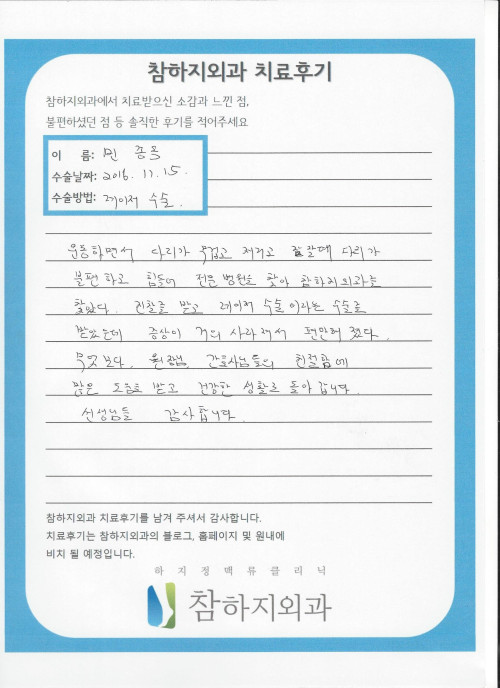 참하지외과 치료후기
참하지외과에서 치료받으신 소감과 느낀 점,
불편하셨던 점 등 솔직한 후기를 적어주세요
이 름: 민 종옥
수술날짜: 2016. 11. 15.
수술방법: 레이저 수술.
운동하면서 다리가 무겁고 저리고 잘때 다리가
불편하고 힘들어 전문 병원을 찾아 참하지외과를
찾았다. 진찰을 받고 레이저 수술이라는 수술을
받았는데 증상이 거의 사라져서 편안해 졌다.
무엇보다. 원장님, 간호사님들의 친절함에
많은 도움을 받고 건강한 생활로 돌아갑니다.
선생님들 감사합니다.
참하지외과 치료후기를 남겨 주셔서 감사합니다.
치료후기는 참하지외과의 블로그, 홈페이지 및 원내에
비치 될 예정입니다.
하지정맥류클리닉
참하지외과